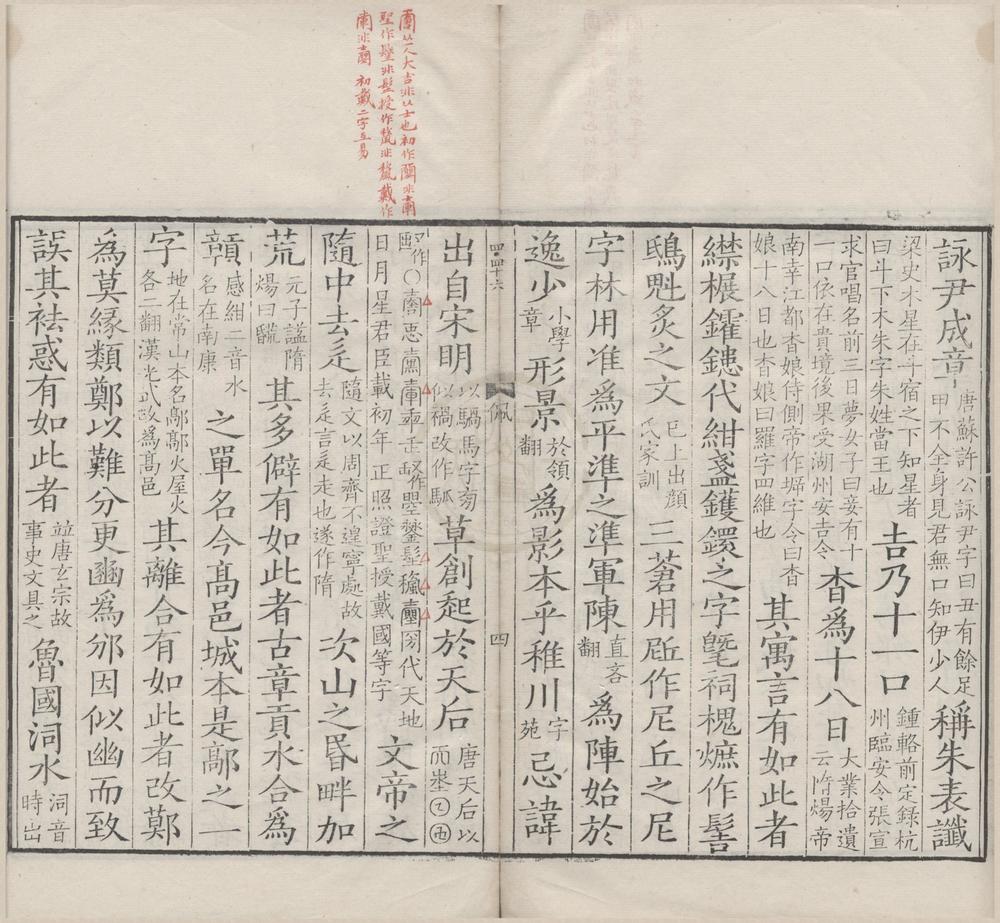 从一人大吉非从士也初作非
聖作非授作非戴作
非 初戴二字互易
詠尹成章
唐蘇許公詠尹字曰丑有餘足
甲不全身見君無口知伊少人
稱朱表讖
梁史木星在斗宿之下知星者
曰斗下木朱字朱姓當王也
吉乃十一口
鍾輅前定錄杭
州臨安令張宣
求官唱名前三日夢女子曰妾有十
一口依在貴境後果受湖州安吉令
杳為十八日
大業拾遺
云隋煬帝
南幸江都杳娘侍側帝作字令曰杳
娘十八日也杳娘曰羅字四維也
其寓言有如此者
代紺盞鑊鐶之字祠槐作髻
鴟魁炙之文
已上出顏
氏家訓
三蒼用作尼丘之尼
字林用准為平準之準軍陳
直吝
翻
為陣始於
逸少
小學
章
形景
於領
翻
為影本乎稚川
字
苑
忌諱
四·四十六
佩
四
出自宋明
以騧馬字旁
似禍改作䯄
草創起於天后
唐天后以
而埊
作〇代天地
日月星君臣載初年正照證聖授戴國等字
文帝之
隨中去辵
隨文以周齊不遑寧處故
去辵言辵走也遂作隋
次山之昬畔加
荒
元子謚隋
煬曰𧧢
其多僻有如此者古章貢水合為
贛
感紺二音水
名在南康
之單名今高邑城本是鄗之一
字
地在常山本名鄗鄗火屋火
各二翻漢光武改為高邑
其離合有如此者改鄭
為莫緣類鄭以難分更豳為邠因似幽而致
誤其祛惑有如此者
竝唐玄宗故
事史文具之
魯國洞水
洞音
時出